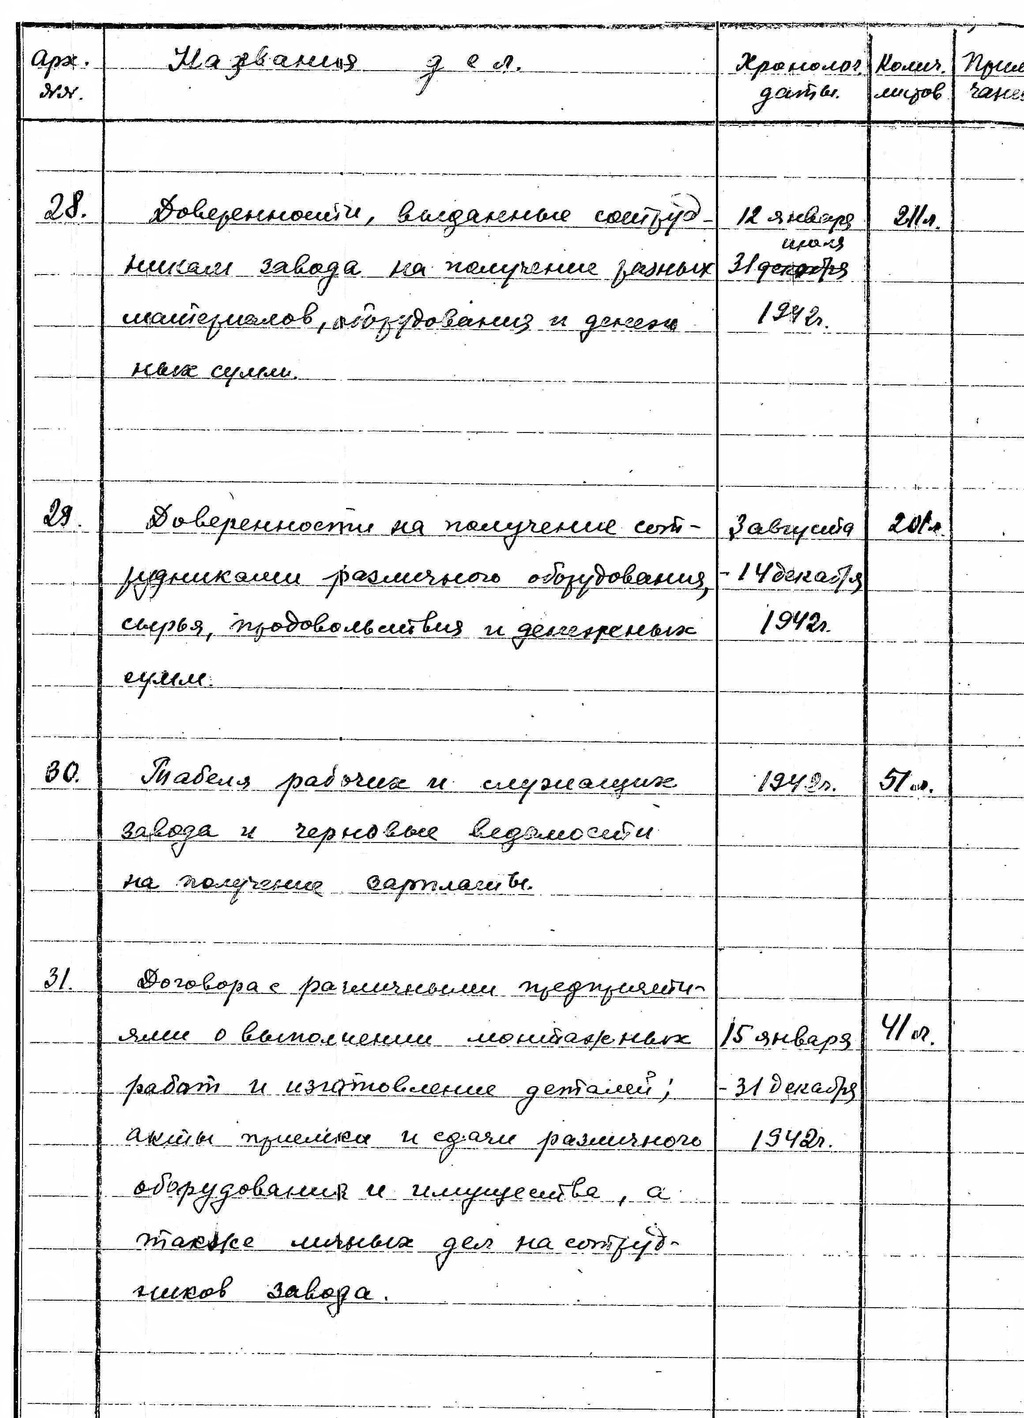 Арх. Названия дел. Хронолог. Колич. Прим
№№. даты. листов чание
28. Доверенности, выданные сотруд- 12 января 211л.
июля
никам завода на получение разных 31 декабря
материалов, оборудования и денеж 1942г.
ных сумм.
29. Доверенности на получение сот- 3 августа 201л.
рудниками различного оборудования, - 14 декабря
сырья, продовольствия и денежных 1942г.
сумм.
30. Табеля рабочих и служащих 1942г. 51л.
завода и черновые ведомости
на получение зарплаты.
31. Договора с различными предприяти-
ями о выполнении монтажных 15 января 41л.
работ и изготовление деталей; - 31 декабря
акты приемки и сдачи различного 1942г.
оборудования и имущества, а
также личных дел на сотруд-
ников завода.